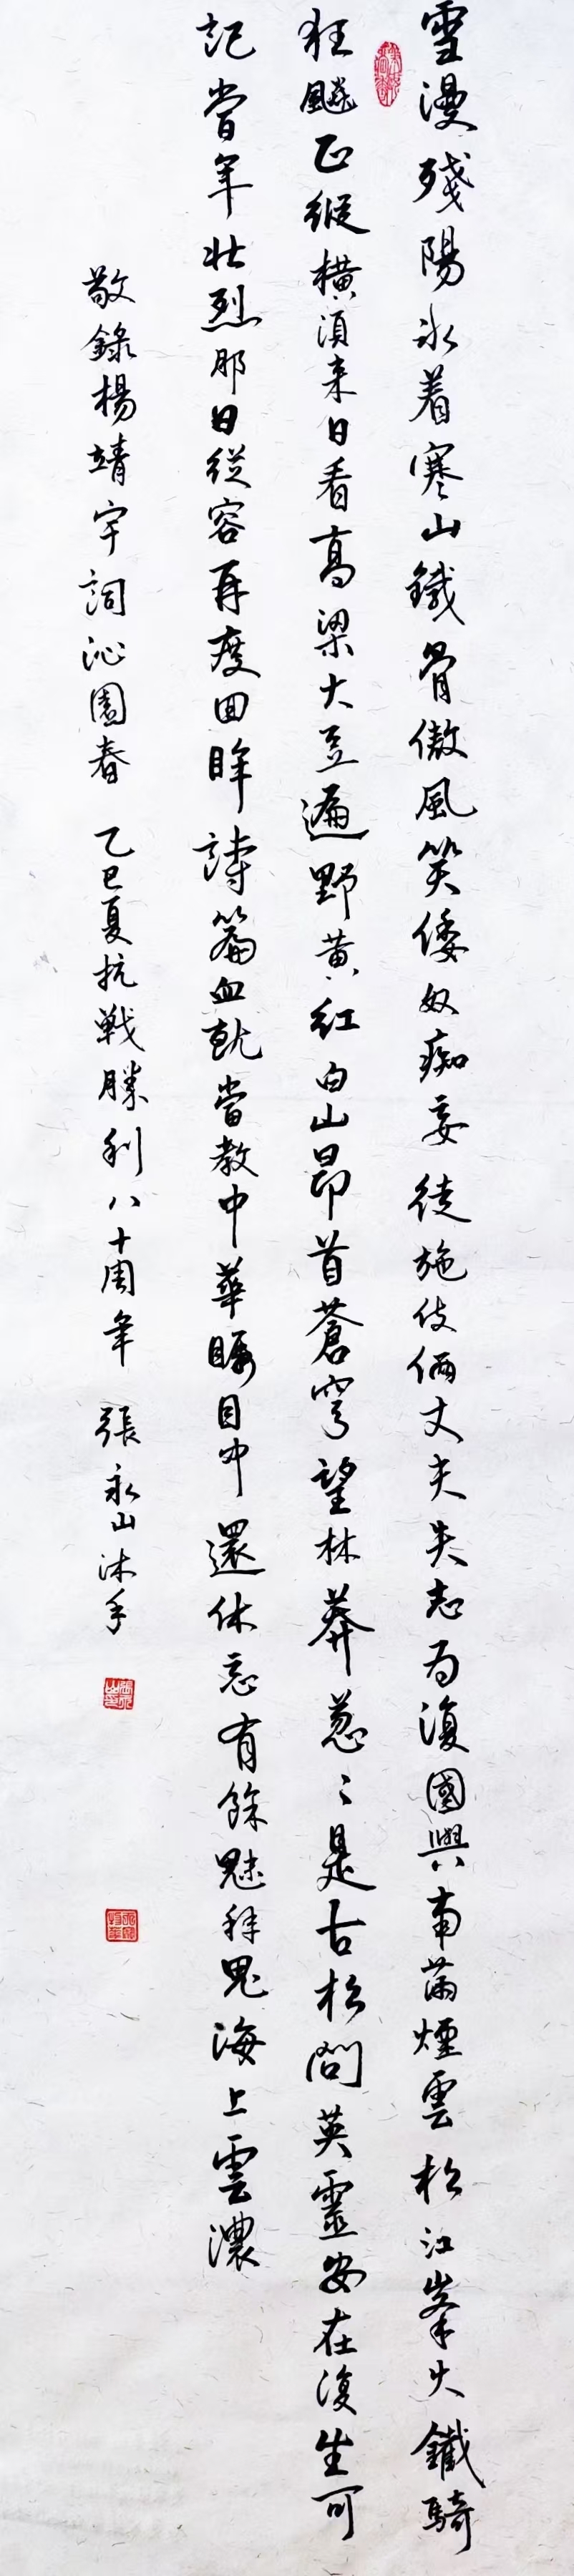 雪漫殘陽冰着寒山鐵骨傲風笑倭奴痴妄徒施伎倆丈夫失志為復國興南滿煙雲松江峯火鐵騎
狂飈正縱橫須来日看高梁大豆遍野黄紅白山昂首蒼穹望林莽葱〻是古松問英靈安在復生可
記當年壮烈那日從容再度回眸詩篇血就當教中華矚目中還休忘有餘魅拜鬼海上雲濃
敬錄楊靖宇詞沁園春 乙巳夏抗戰勝利八十周年 張永山沐手